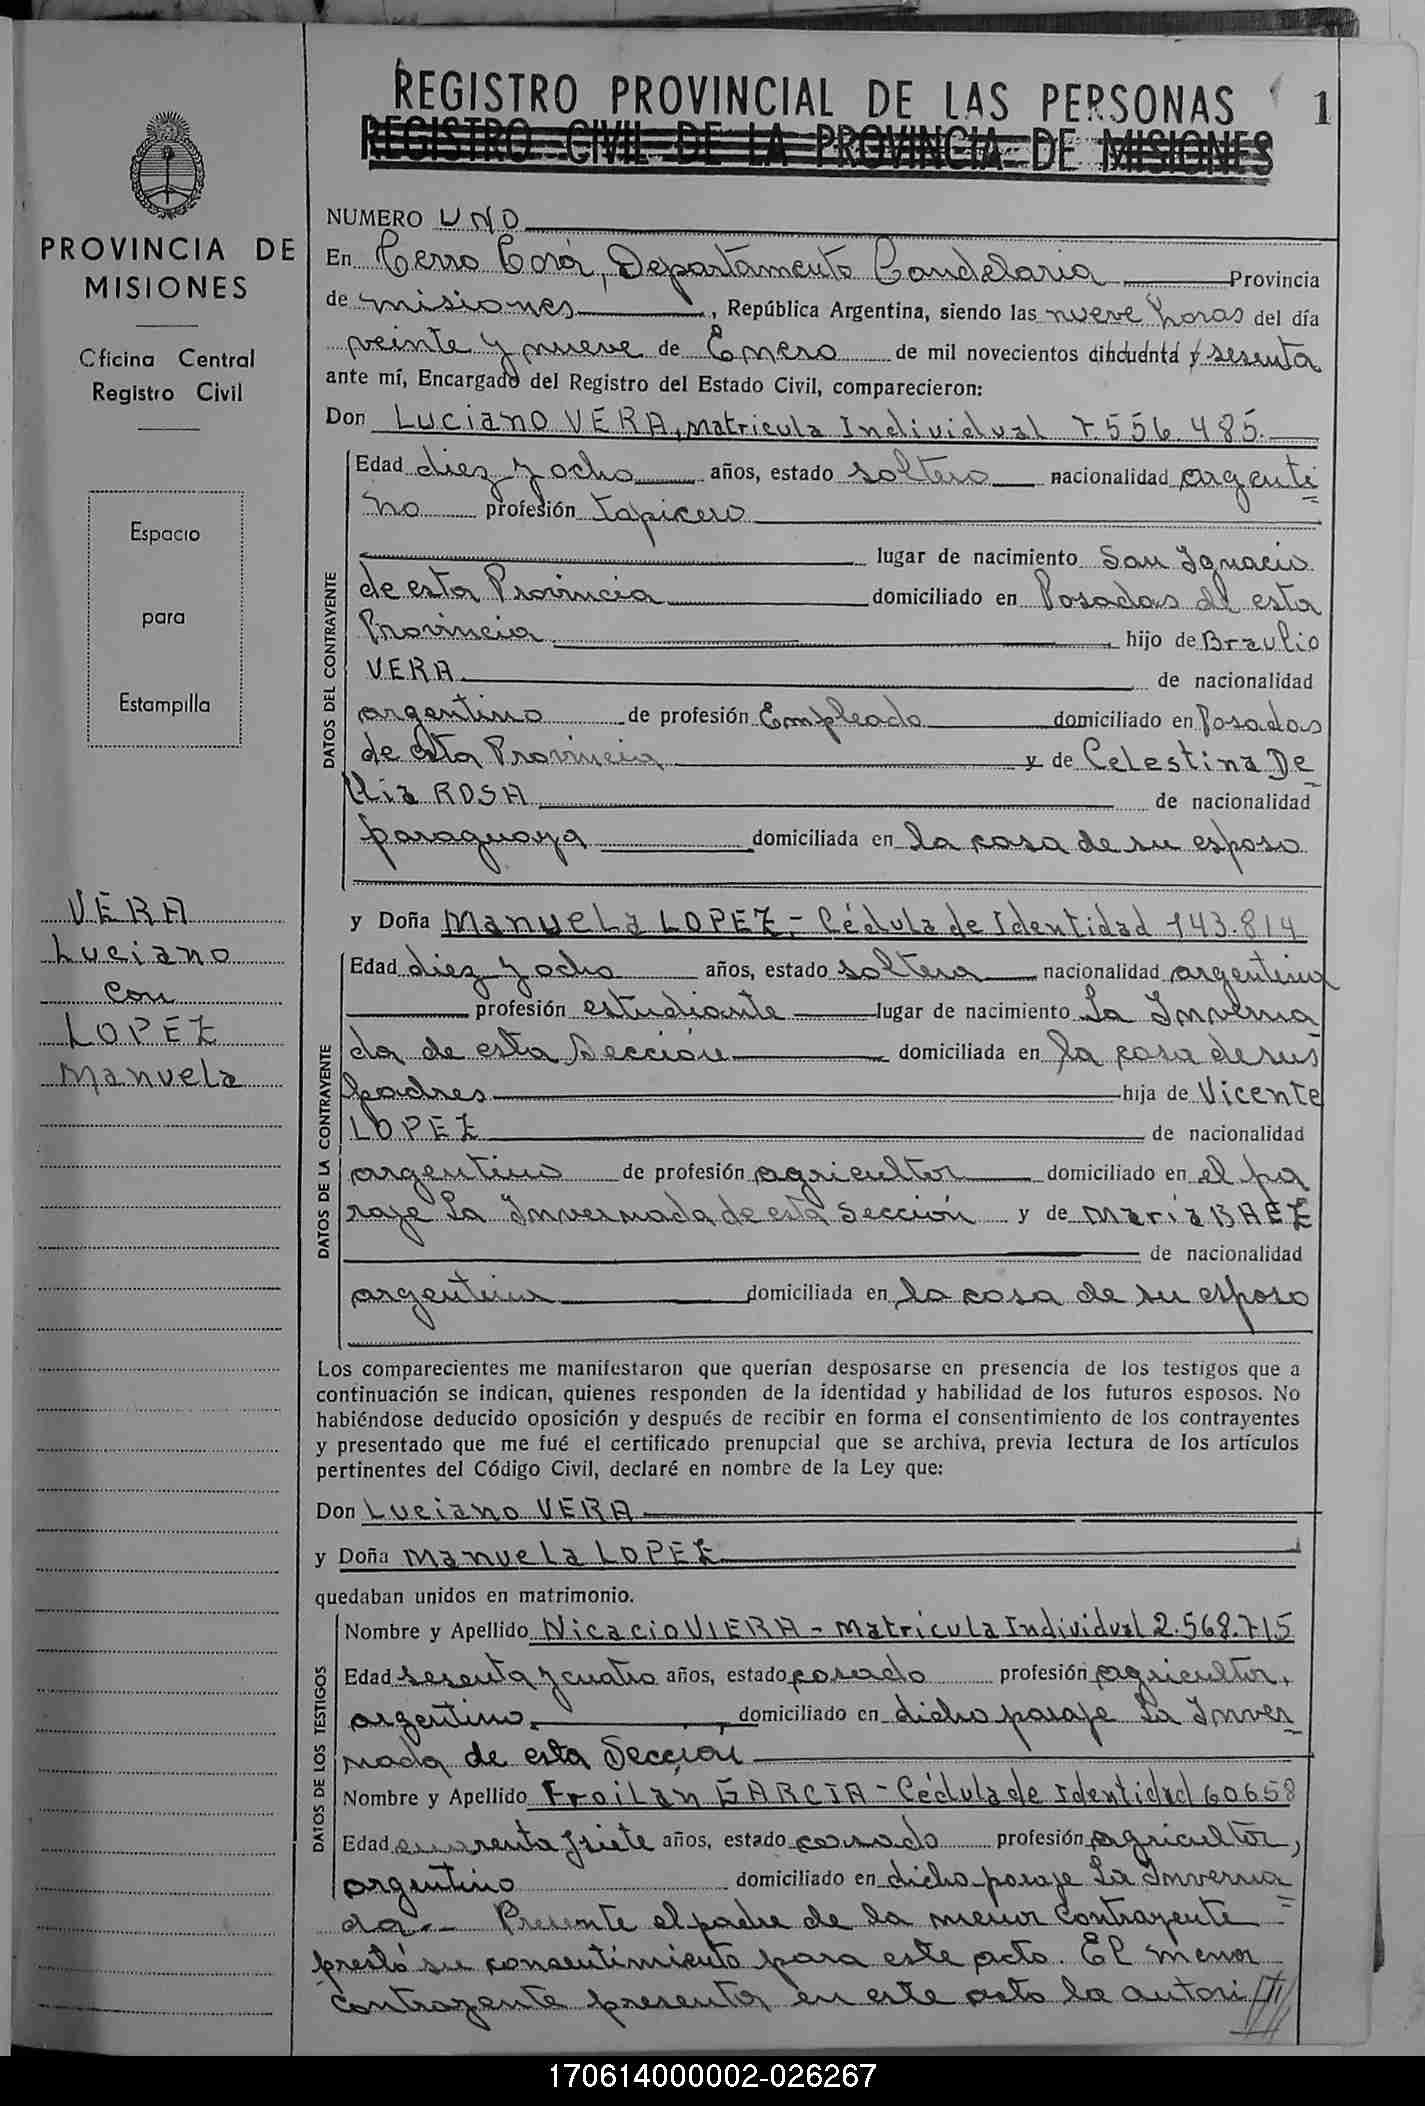 REGISTRO PROVINCIAL DE LAS PERSONAS 1
REGISTRO CIVIL DE LA PROVINCIA DE MISIONES
PROVINCIA DE
MISIONES
Oficina Central
Registro Civil
Espacio
para
Estampilla
VERA
Luciano
con
LOPEZ
Manuela
NUMERO UNO
En Cerro Corá, Departamento Candelaria Provincia
de misiones, República Argentina, siendo las nueve horas del día
veinte y nueve de Enero de mil novecientos cincuenta y sesenta
ante mí, Encargado del Registro del Estado Civil, comparecieron:
Don Luciano VERA, Matricula Individual 7.556.485.
DATOS DEL CONTRAYENTE
Edad diez y ocho años, estado soltero nacionalidad argenti
no profesión tapicero
lugar de nacimiento San Ignacio
de esta Provincia domiciliado en Posadas de esta
Provincia hijo de Braulio
VERA de nacionalidad
argentino de profesión Empleado domiciliado en Posadas
de esta Provincia y de Celestina De
llia ROSA de nacionalidad
paraguaya domiciliada en la casa de su esposo
y Doña Manuela LOPEZ.- Cédula de Identidad 143.814
DATOS DE LA CONTRAYENTE
Edad diez y ocho años, estado soltera nacionalidad argentina
profesión estudiante lugar de nacimiento La Inverna
da de esta Sección domiciliada en la casa de sus
padres hija de Vicente
LOPEZ de nacionalidad
argentino de profesión agricultor domiciliado en el pa
raje La Invernada de esta Sección y de María BAEZ
de nacionalidad
argentina domiciliada en la casa de su esposo
Los comparecientes me manifestaron que querían desposarse en presencia de los testigos que a
continuación se indican, quienes responden de la identidad y habilidad de los futuros esposos. No
habiéndose deducido oposición y después de recibir en forma el consentimiento de los contrayentes
y presentado que me fué el certificado prenupcial que se archiva, previa lectura de los artículos
pertinentes del Código Civil, declaré en nombre de la Ley que:
Don Luciano VERA
y Doña Manuela LOPEZ
quedaban unidos en matrimonio.
DATOS DE LOS TESTIGOS
Nombre y Apellido Nicacio VIERA - Matrícula Individual 2.568.715
Edad sesenta y cuatro años, estado casado profesión agricultor,
argentino, domiciliado en dicho paraje La Inver
nada de esta Sección
Nombre y Apellido Froilán GARCIA - Cédula de Identidad 60658
Edad cuarenta y siete años, estado casado profesión agricultor,
argentino domiciliado en dicho paraje La Inverna
da.- Presente el padre de la menor contrayente
prestó su consentimiento para este acto. El menor
contrayente presenta en este acto la autori ///
170614000002-026267